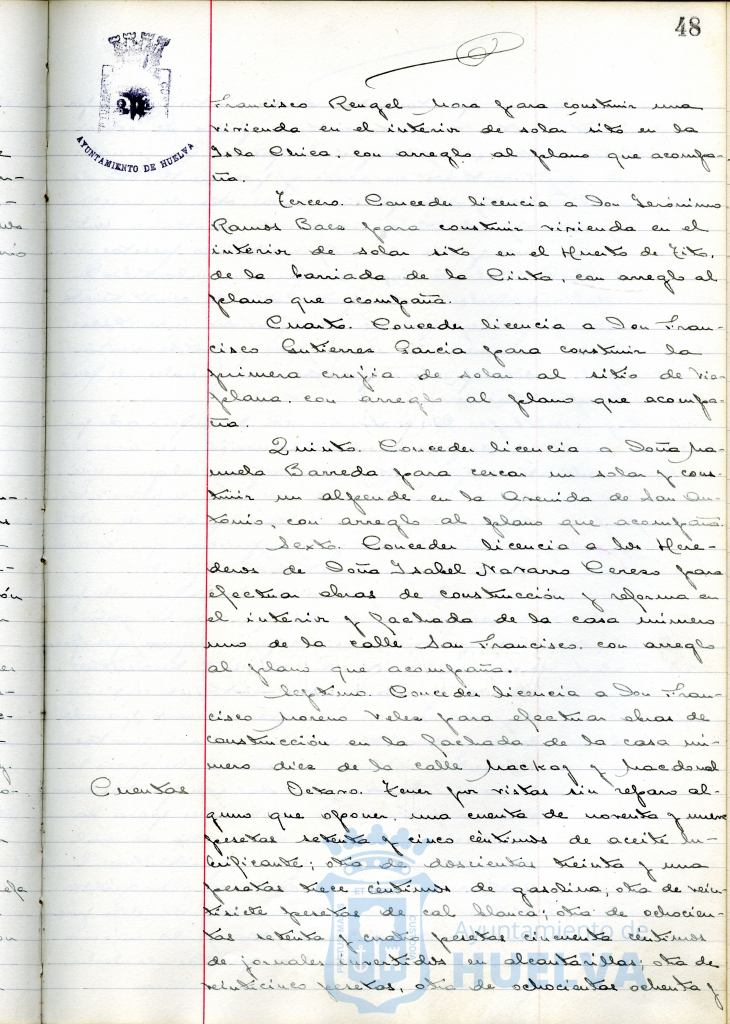 48
AYUNTAMIENTO DE HUELVA
Francisco Rengel Mora para construir una
vivienda en el interior de solar sito en la
Isla Chica, con arreglo al plano que acompa-
ña.
Tercero. Conceder licencia a Don Jerónimo
Ramos Baez para construir vivienda en el
interior de solar sito en el Huerto de Tito,
de la barriada de la Cinta, con arreglo al
plano que acompaña.
Cuarto. Conceder licencia a Don Fran-
cisco Gutierrez Garcia para construir la
primera crujia de solar al sitio de Via-
plana, con arreglo al plano que acompa-
ña.
Quinto. Conceder licencia a Doña Ma-
nuela Barreda para cercar un solar y cons-
truir un alpende en la Avenida de San An-
tonio, con arreglo al plano que acompaña.
Sexto. Conceder licencia a los Here-
deros de Doña Isabel Navarro Cerezo para
efectuar obras de construcción y reforma en
el interior y fachada de la casa número
uno de la calle San Francisco, con arreglo
al plano que acompaña.
Séptimo. Conceder licencia a Don Fran-
cisco Moreno Velez para efectuar obras de
construcción en la fachada de la casa nú-
mero diez de la calle Mackay y Macdonal
Cuentas
Octavo. Tener por vistas sin reparo al-
guno que oponer, una cuenta de noventa y nueve
pesetas setenta y cinco céntimos de aceite lu-
brificante; otra de doscientas treinta y una
pesetas trece céntimos de gasolina; otra de vein-
tisiete pesetas de cal blanca; otra de ochocien-
tas setenta y cuatro pesetas cincuenta céntimos
de jornales invertidos en alcantarillas; otra de
veinticinco pesetas, otra de ochocientas ochenta y
Ayuntamiento de
HUELVA